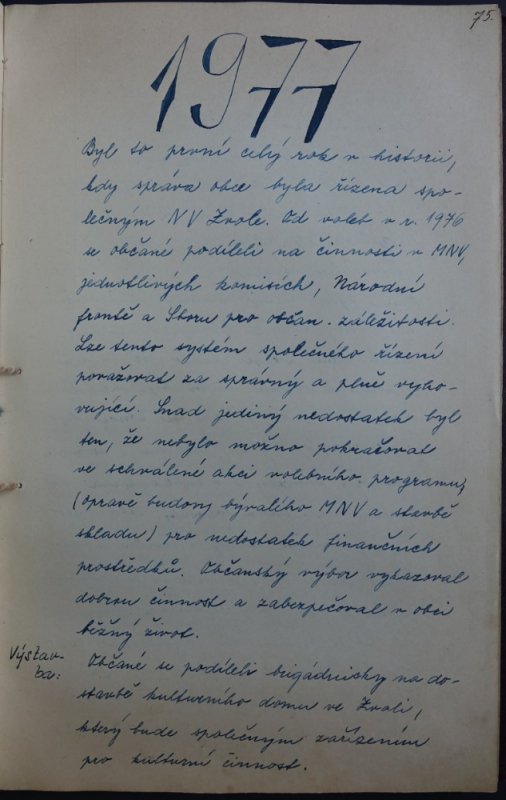 75.
1977
Byl to první celý rok v historii,
kdy správa obce byla řízena spo-
lečným NV Zvole. Od voleb v r. 1976
se občané podíleli na činnosti v MNV,
jednotlivých komisích, Národní
frontě a Sboru pro občan. záležitosti.
Lze tento systém společného řízení
považovat za správný a plně vyho-
vující. Snad jediný nedostatek byl
ten, že nebylo možno pokračovat
ve schválené akci volebního programu,
(opravě budovy bývalého MNV a stavbě
skladu) pro nedostatek finančních
prostředků. Občanský výbor vykazoval
dobrou činnost a zabezpečoval v obci
běžný život.
Výstav-
ba:
Občané se podíleli brigádnicky na do-
stavbě kulturního domu ve Zvoli,
který bude společným zařízením
pro kulturní činnost.